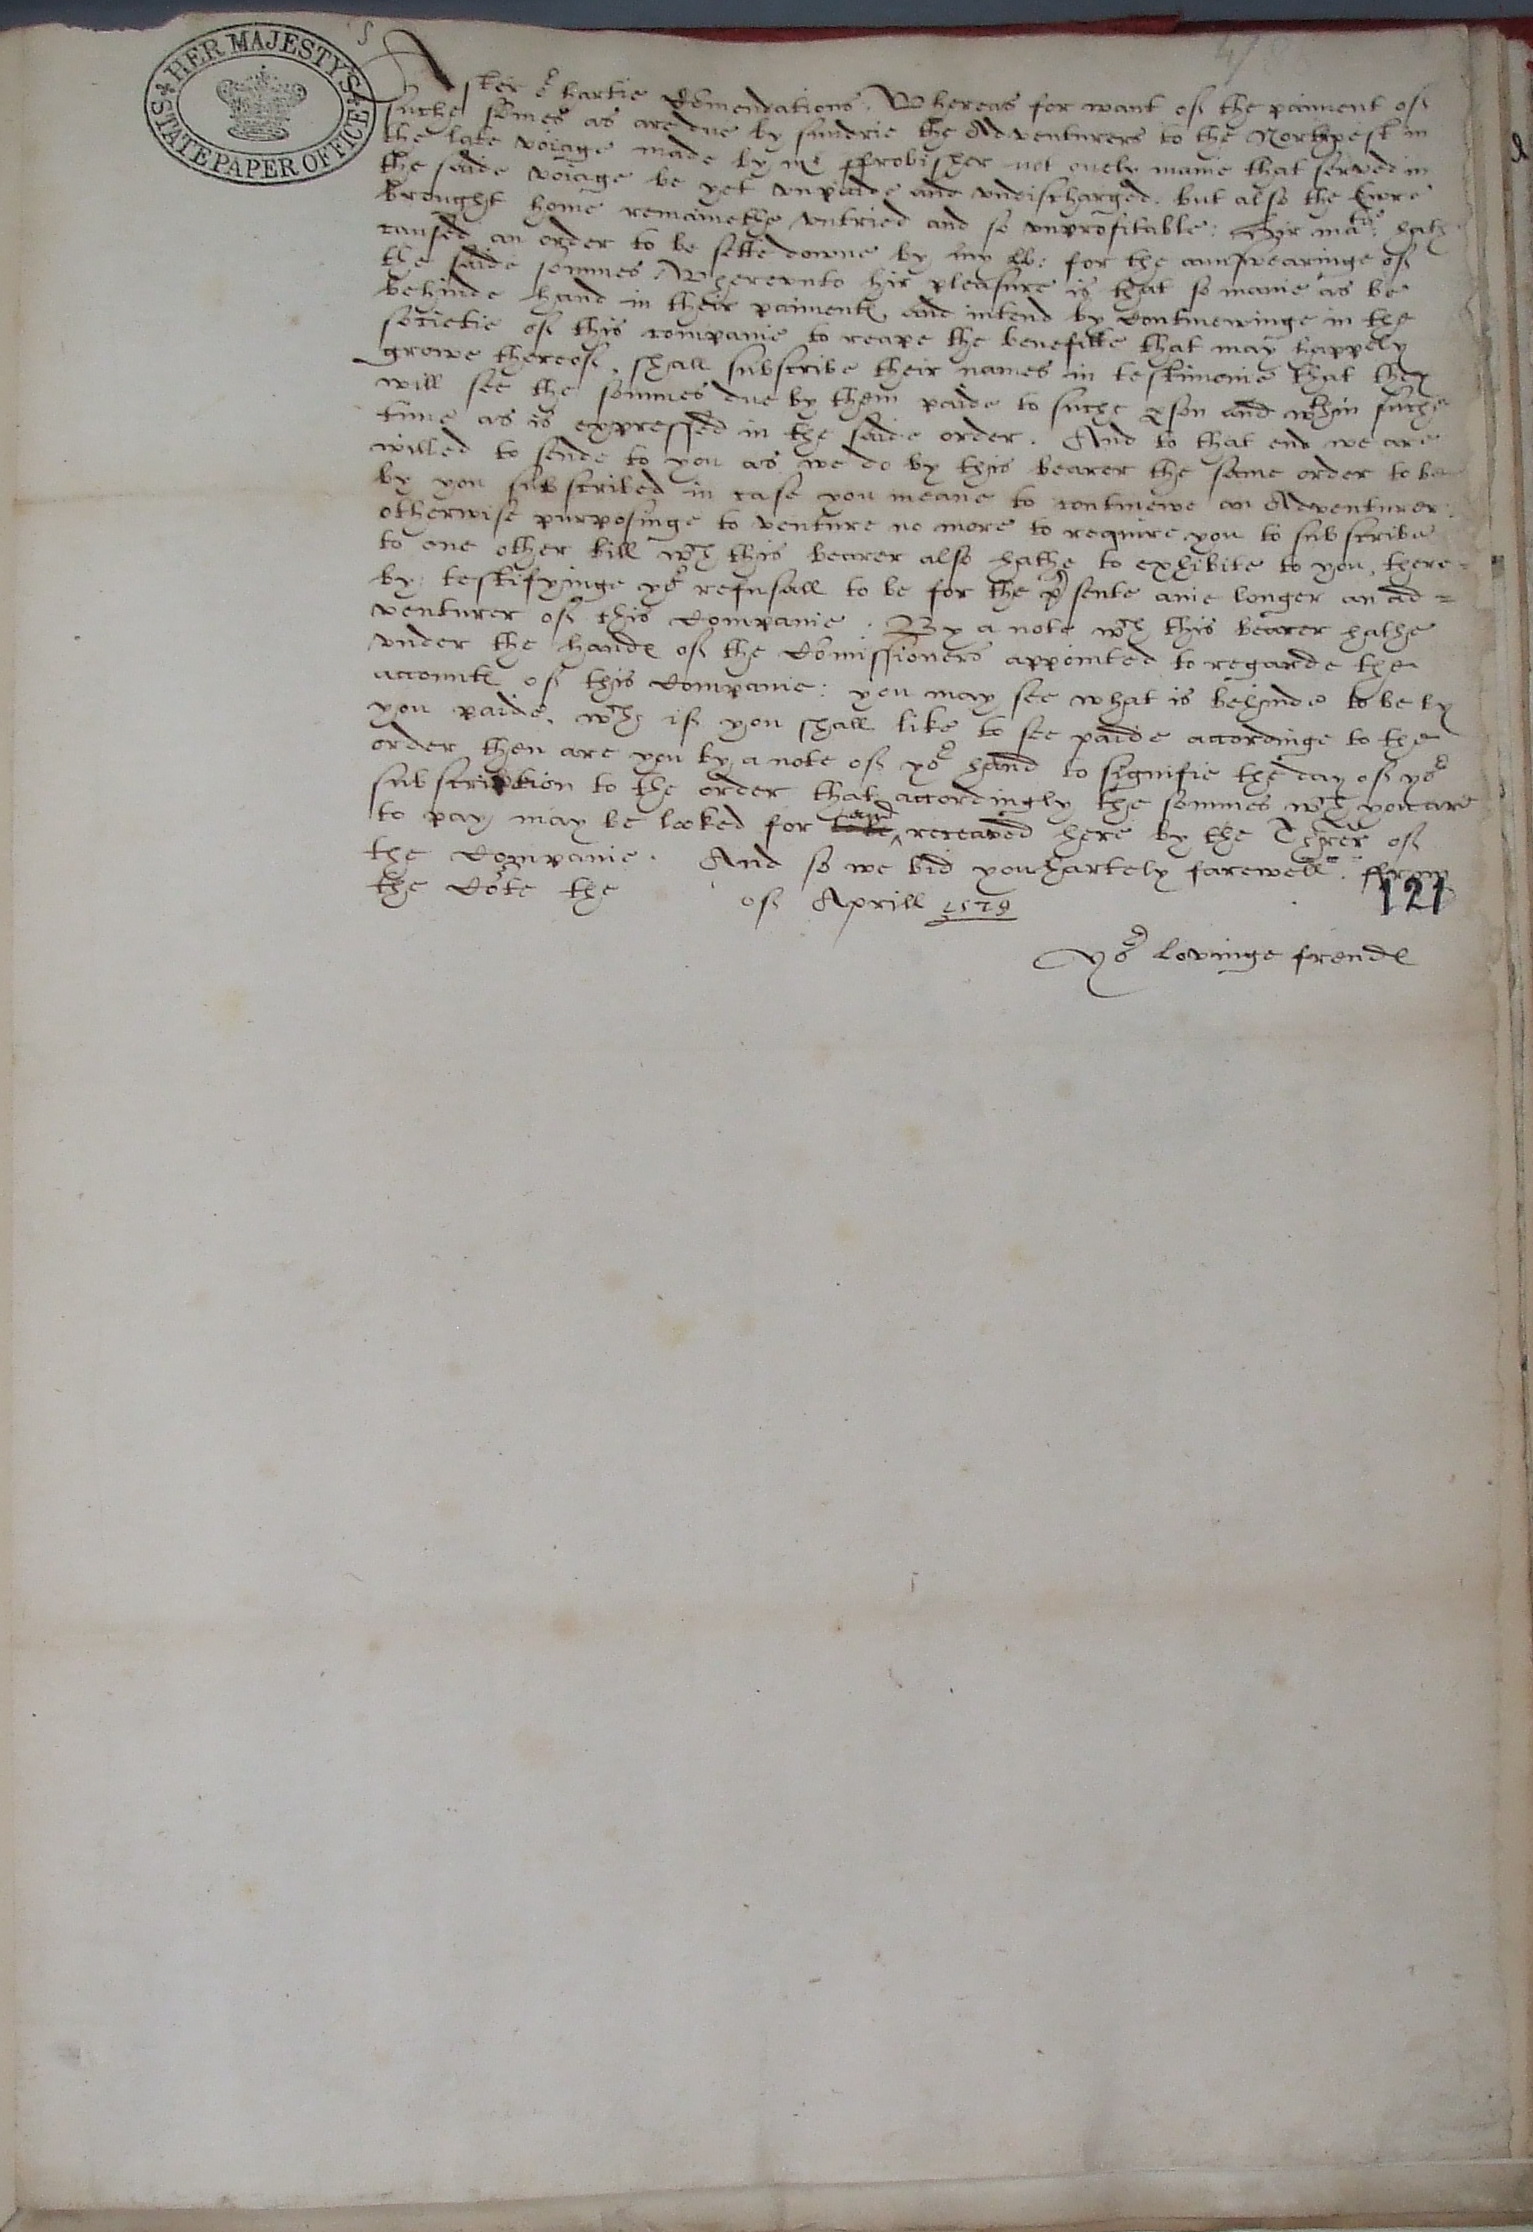 HER MAJESTY'S STATE PAPER OFFICE
After or hartie Comendations. Whereas for want of the paiment of
suche somes as are due by sundrie the Adventurers to the Northwest in
the late voiage made by mr ffrobisher not onely manie that served in
the saide voiage be yet vnpaide and vndischarged, but also the Ewre
brought home remainethe vntried and so vnprofitable: Hir matie: hath
caused an order to be sette downe by my LL: for the aunswearinge of
the saide sommes. Wherevnto hir pleasure is that so manie as be
behinde hand in their paiments, and intend by Contineweinge in the
societie of this companie to reape the benefitte that may happely
growe thereof, shall subscribe their names in testimonie that they
will see the sommes due by them paide to suche pson and wthin suche
time as is expressed in the saide order. And to that end we are
willed to sende to you as we do by this bearer the same order to be
by you subscribed in case you meane to continewe an Adventurer:
otherwise purposinge to venture no more to require you to subscribe
to one other bill wch this bearer also hathe to exhibite to you, there=
by testifyinge yor refusall to be for the psente anie longer an ad=
venturer of this Companie. By a note wch this bearer hathe
vnder the hands of the Comissioners appointed to regarde the
accounts of this Companie: you may see what is behinde to be by
you paide, wch if you shall like to see paide accordinge to the
order then are you by a note of yor hand to signifie the day of yor
subscription to the order that accordingly the sommes wch you are
to pay may be looked for to be ^and receaved here by the Thrër of
the Companie. And so we bid you hartely farewell. ffrom
the Cote the of Aprill 1579
121
Yor lovinge frends